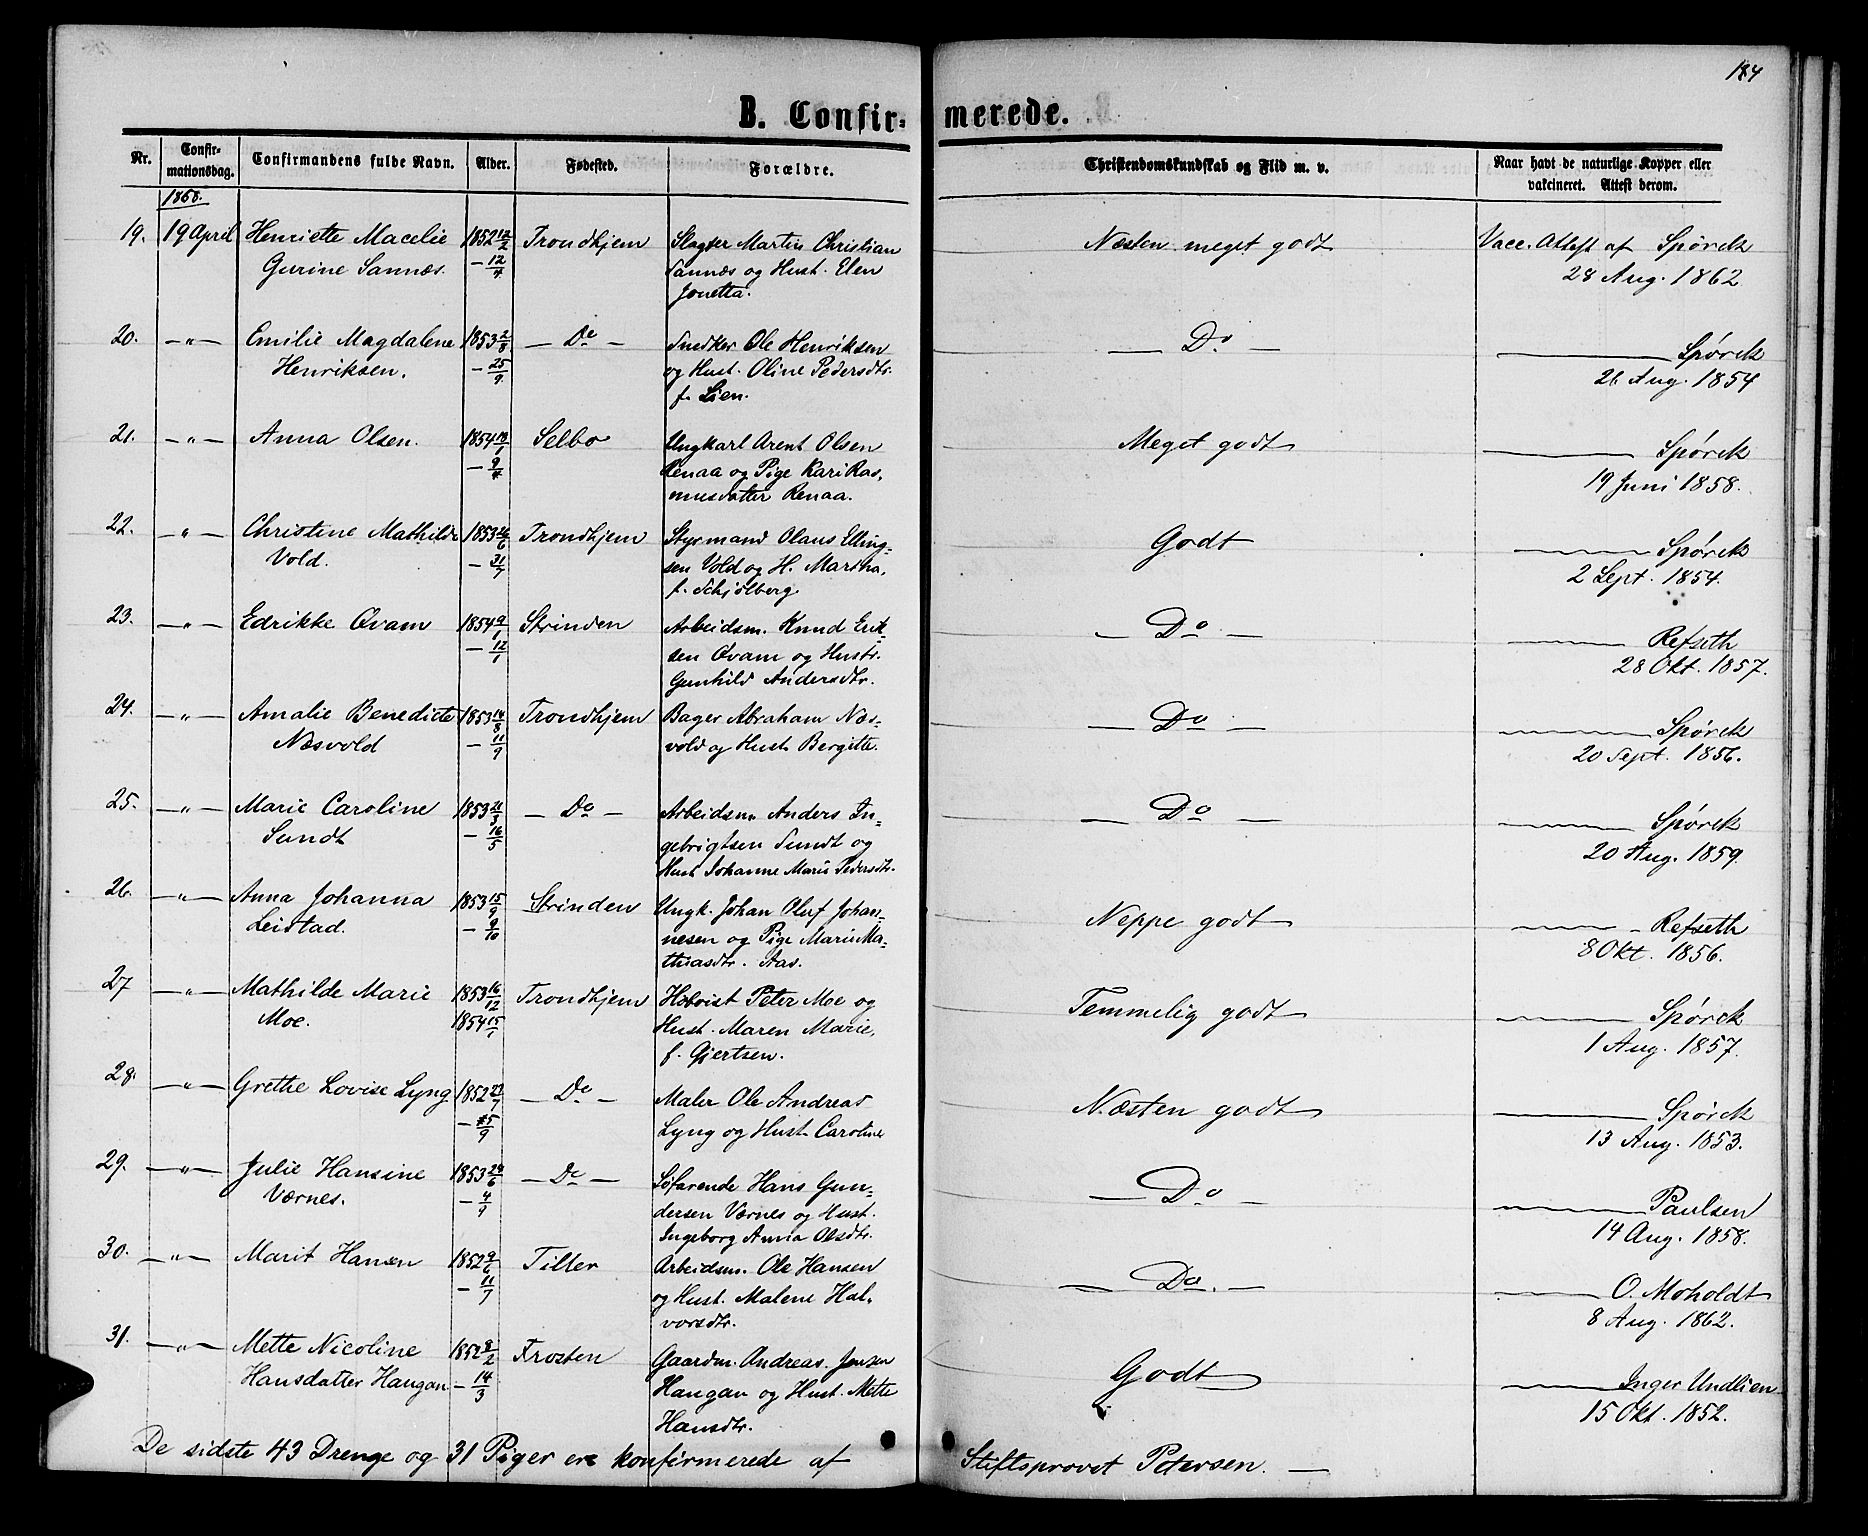 184
B. Confir- merede.
Nr. Confir-mationsdag. Confirmandens fulde Navn. Alder. Fødested. Forældre. Christendomskundskab og Flid m. v. Naar havt de naturlige Kopper eller vakcineret. Attest derom.
1868.
19. 19 April Henriette Macelie 1852 Trondhjem Slagter Martin Christian Næsten meget godt Vacc. Attest af Spørck
Gurine Sannæs. - 12/4 Sannæs og Hust. Elen 28 Aug. 1862
Jonetta.
20. — " — Emilie Magdalene 1853 2/8 — Do — Snedker Ole Henriksen — Do — Spørck
Henriksen. - 25/9 og Hust. Oline Pedersdtr. 26 Aug. 1854
f. Lien.
21. — " — Anna Olsen. 1854 Selbo Ungkarl Arent Olsen Meget godt Spørck
- 9/4 Renaa og Pige Kari Ras- 19 Juni 1858.
musdatter Renaa.
22. — " — Christine Mathilde 1853 26/6 Trondhjem Styrmand Olaus Elling- Godt Spørck
Vold. - 31/7 sen Vold og H. Martha, 2 Sept. 1854.
f. Schjølberg
23. — " — Edrikke Øvam 1854 9/1 Strinden Arbeidsm. Knud Erik- — Do — Refseth
- 12/1 sen Øvam og Hustr. 28 Okt. 1857.
Gunhild Andersdtr.
24. — " — Amalie Benedicte 1853 14/8 Trondhjem Bager Abraham Næs- — Do — Spørck
Næsvold - 11/9 vold og Hust. Bergitte. 20 Sept. 1856.
25. — " — Marie Caroline 1853 21/3 — Do — Arbeidsm. Anders In- — Do — Spørck
Sundt - 16/5 gebrigtsen Sundt og 20 Aug. 1859.
Hust Johanne Marie Pedersdtr.
26. — " — Anna Johanna 1853 15/9 Strinden Ungk. Johan Oluf Johan- Neppe godt Refseth
Leistad. - 9/10 nesen og Pige Marie Ma- 8 Okt. 1856.
thiasdtr. Aas.
27 — " — Mathilde Marie 1853 16/12 Trondhjem Peter Moe og Temmelig godt Spørck
Moe. 1854 15/1 Hust. Maren Marie, 1 Aug. 1857.
f. Gjertsen.
28. — " — Grethe Lovise Lyng 1852 27/7 — Do — Maler Ole Andreas Næsten godt Spørck
- 5/9 Lyng og Hust. Caroline 13 Aug. 1853.
29. — " — Julie Hansine 1853 24/6 — Do — Søfarende Hans Gun- — Do — Paulsen
Værnes. - 4/9 dersen Værnes og Hust. 14 Aug. 1858.
Ingeborg Anna Olsdtr.
30. — " — Marit Hansen 1852 9/6 Tiller Arbeidsm. Ole Hansen — Do. — O. Moholdt
- 11/7 og Hust. Malene Hal- 8 Aug. 1862.
vorsdtr.
31. — " — Mette Nicoline 1852 9/2 Frosten Gaardm. Andreas Jensen Godt Inger Undlien
Hansdatter Haugan - 14/3 Haugan og Hust. Mette 15 Okt. 1852.
Hansdtr.
De sidste 43 Drenge og 31 Piger ere konfirmerede af Stiftsprovst Petersen. —